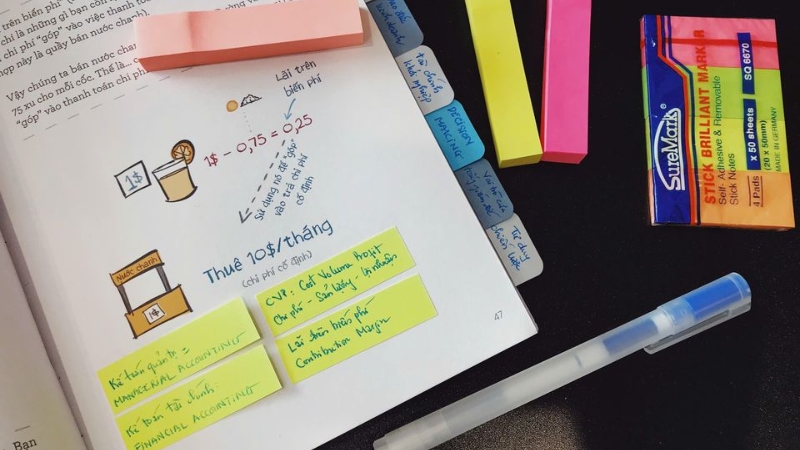 trên biến phí"
chỉ là những gì bạn còn
chi phí "góp" vào việc thanh toán
hợp này là quầy bán nước chanh
Vậy chúng ta bán nước chanh
75 xu cho mỗi cốc. Thế là...
"góp" vào thanh toán chi phí
Lãi trên
biến phí
1$ - 0,75 = 0,25
1$
Sử dụng nó để "góp"
vào trả chi phí
cố định
Thuê 10$/tháng
(chi phí cố định)
Nước chanh
1$
CVP: Cost Volume Profit
Chi phí - Sản lượng - Lợi nhuận
Lãi trên biến phí
Contribution Margin
Kế toán quản trị =
MANAGERIAL ACCOUNTING
Kế toán tài chính:
FINANCIAL ACCOUNTING
47
Bạn
tài chính
khởi nghiệp
DECISION
MAKING
Tư duy
chiến lược
SureMark
STICK BRILLIANT MARKER
Self-Adhesive & Removable
Stick Notes
4 Pads
x 50 sheets
(20 x 50mm)
SQ 6670
MADE IN GERMANY